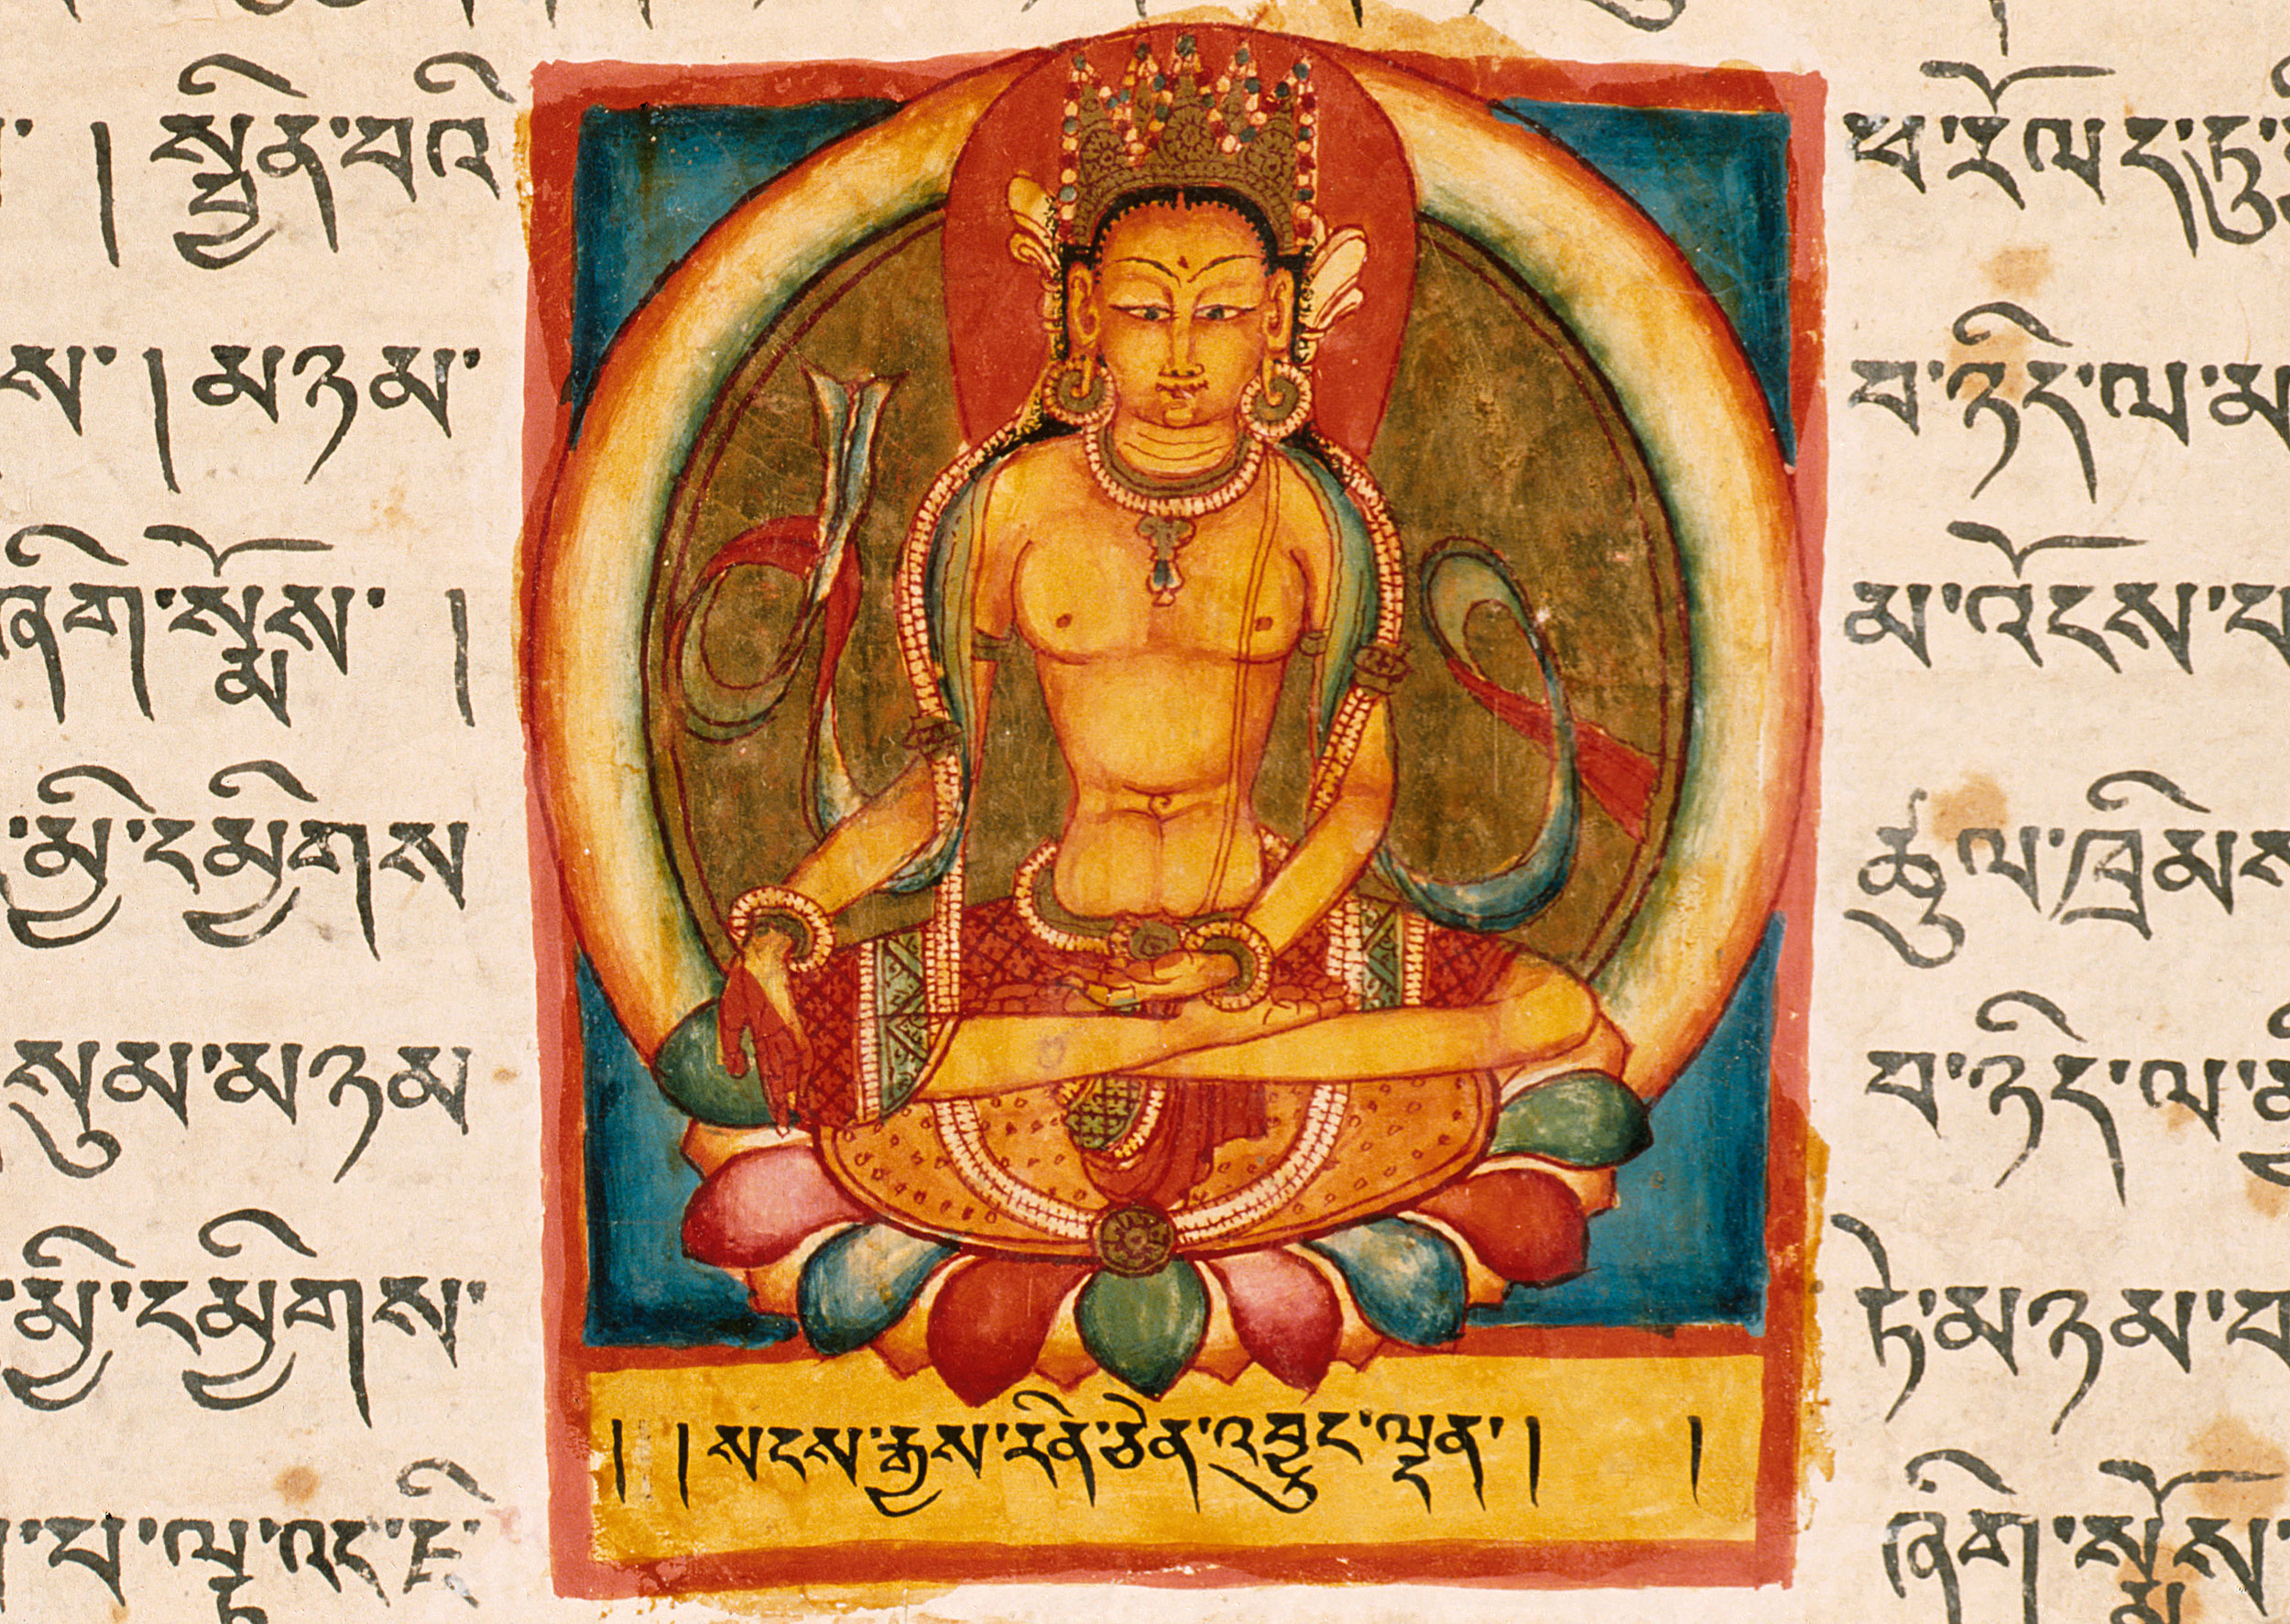 ། སྦྱིན་པའི ཕ་རོལ
ས་ ། མཉམ་ པ་ཉིད་ལ་མ
ཞིག་སྨོས་ ། མ་འོངས་པ
མྱི་དམྱིགས ཚུལ་ཁྲིམས
སུམ་མཉམ པ་ཉིད་ལ་མྱི
མྱི་དམྱིགས་ ཏེ་མཉམ་པ
པ་ལྟ་འང་ཇི ཞིག་སྨོས
། །སངས་རྒྱས་རིན་ཅེན་འབྱུང་ལྡན་། །